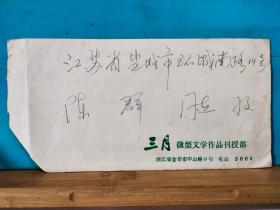 江苏省盐城市环城南路14号
陈群 同志 收
三月 微型文学作品刊授部
浙江省金华市中山路9号 电话 3669